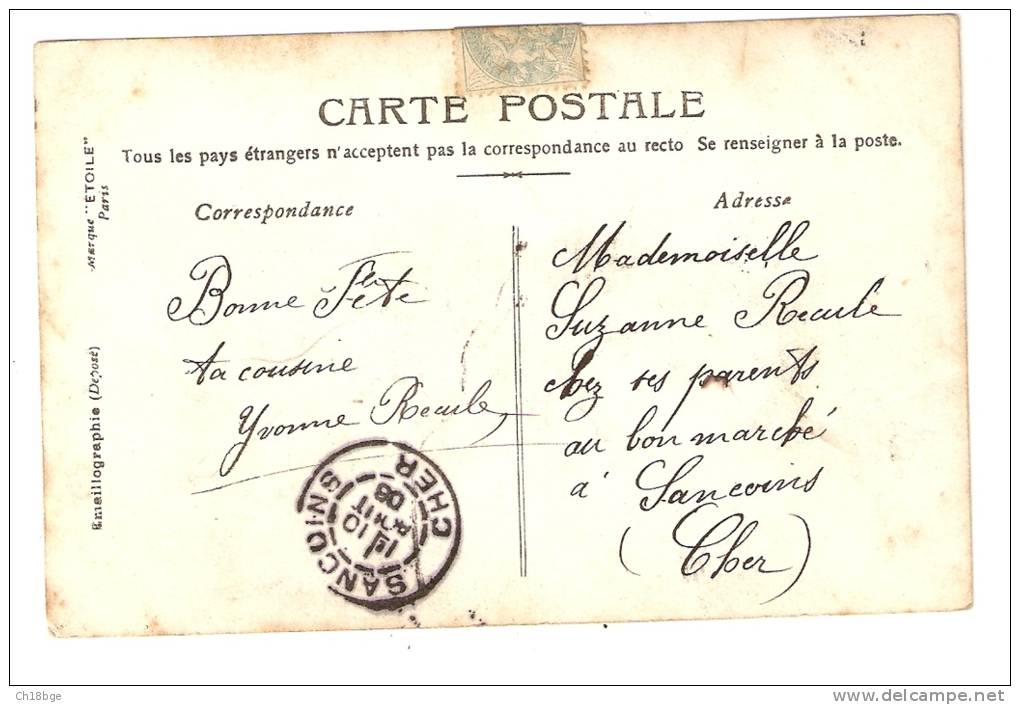 CARTE POSTALE
Tous les pays étrangers n'acceptent pas la correspondance au recto Se renseigner à la poste.
Marque "ETOILE"
Paris
Emaillographie (Déposé)
Correspondance
Bonne Fête
ta cousine
Yvonne Recule
Adresse
Mademoiselle
Suzanne Recule
chez ses parents
au bon marché
à Sancoins
(Cher)
SANCOINS
CHER
10
AOUT
06
Ch18bge
www.delcampe.net